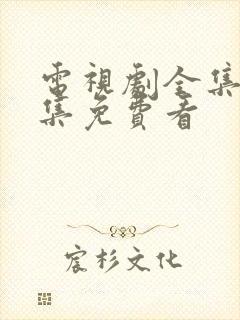 電視劇全集
集免費看
宸杉文化